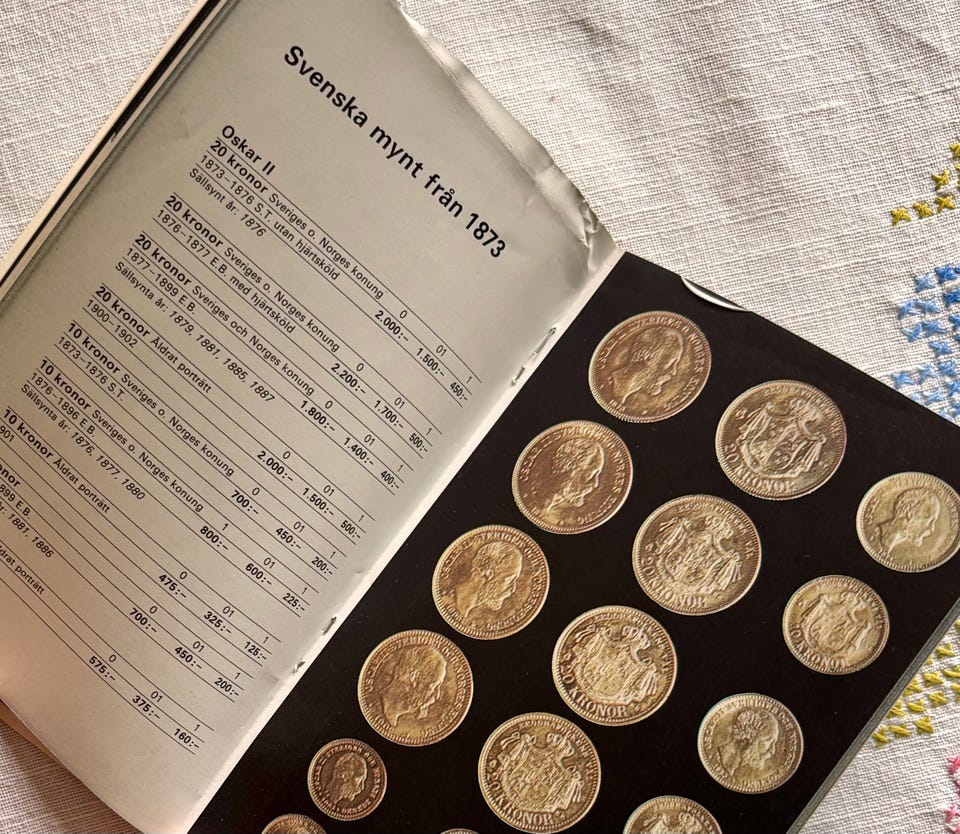 Svenska mynt från 1873
Oskar II
20 kronor Sveriges o. Norges konung 0 01 1
1873–1876 S.T. utan hjärtsköld 2.000:– 1.500:– 450:–
Sällsynt år: 1876
20 kronor Sveriges o. Norges konung 0 01 1
1876–1877 E.B. med hjärtsköld 2.200:– 1.700:– 500:–
20 kronor Sveriges och Norges konung 0 01 1
1877–1899 E.B. 1.800:– 1.400:– 400:–
Sällsynta år: 1879, 1881, 1885, 1887
20 kronor Åldrat porträtt 0 01 1
1900–1902 2.000:– 1.500:– 500:–
10 kronor Sveriges o. Norges konung 0 01 1
1873–1876 S.T. 700:– 450:– 200:–
10 kronor Sveriges o. Norges konung 1
1876–1896 E.B. 800:– 600:– 225:–
Sällsynta år: 1876, 1877, 1880
10 kronor Åldrat porträtt 0 01 1
901 475:– 325:– 125:–
onor 0 01 1
899 E.B. 700:– 450:– 200:–
år: 1881, 1886
at porträtt 0 01 1
575:– 375:– 160:–
20 KRONOR
20 KRONOR
20 KRONOR
20 KRONOR
10 KRONOR